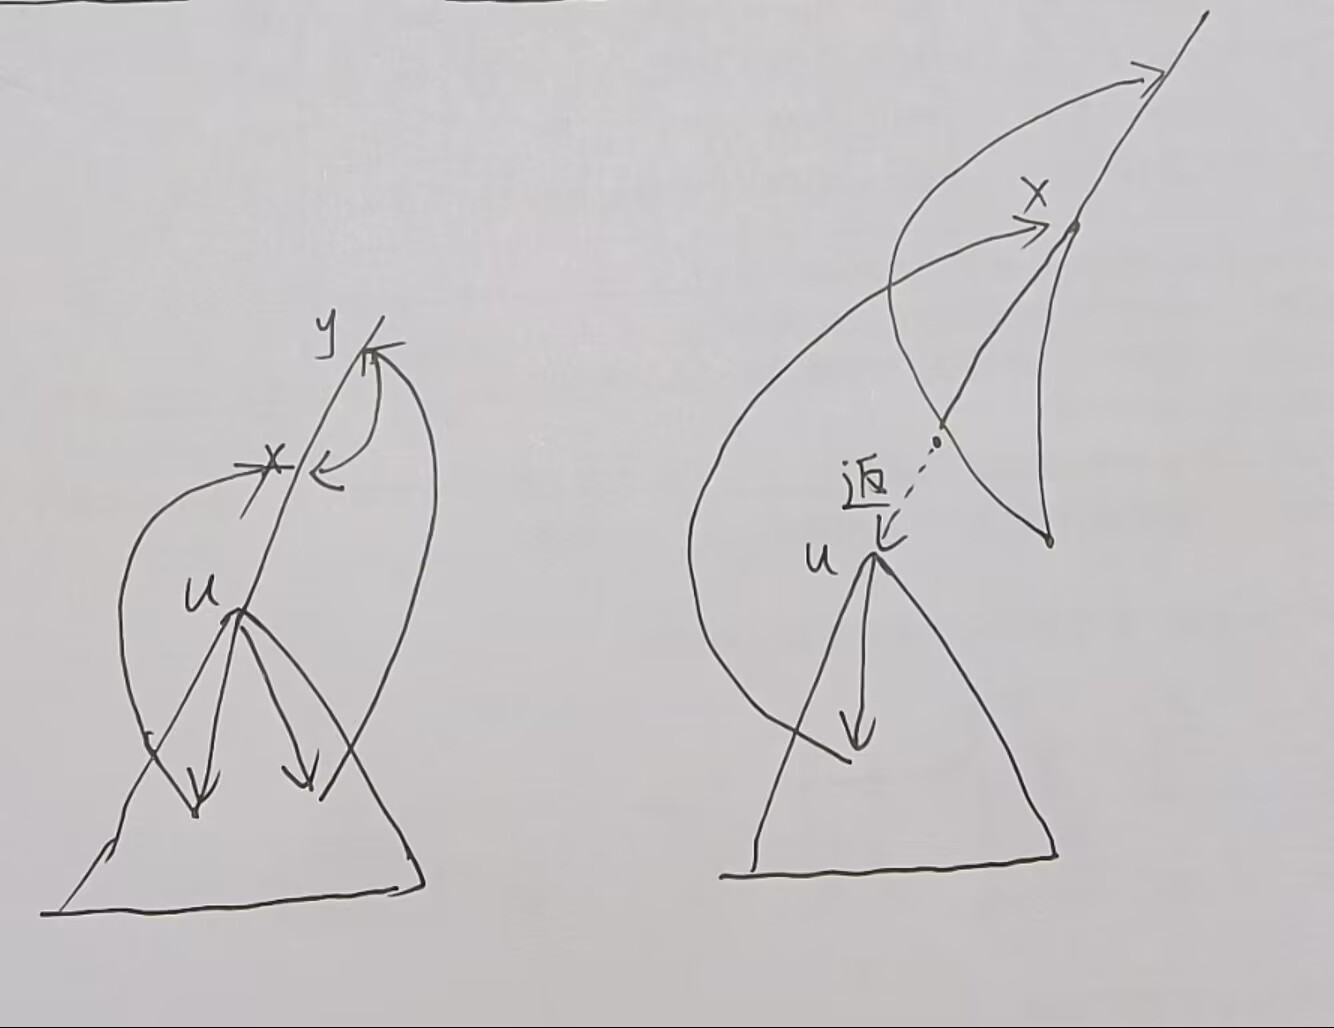 y
x
u
x
返
u